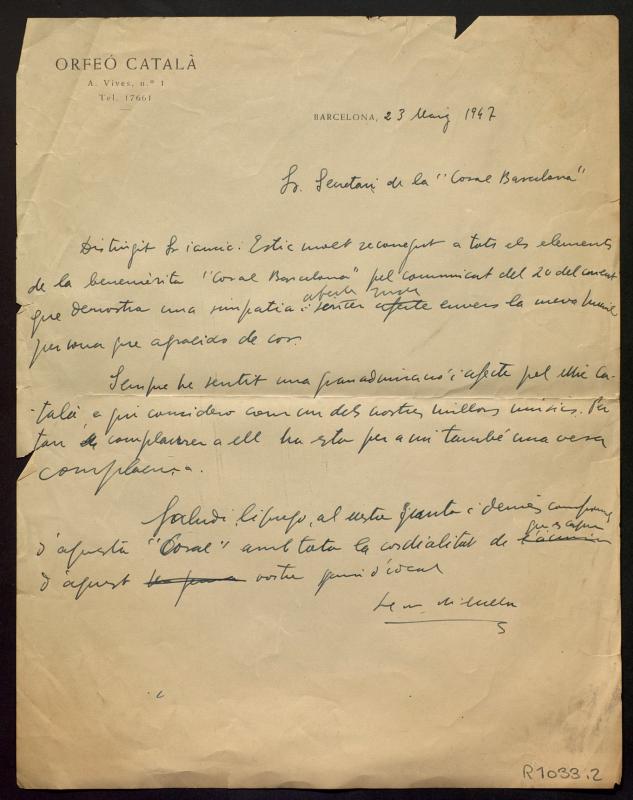 ORFEÓ CATALÀ
A. Vives, n.º 1
Tel. 17661
BARCELONA, 23 Maig 1947
Sr. Secretari de la "Coral Barcelona"
Distingit Sr i amic: Estic molt reconegut a tots els elements
de la benemèrita "Coral Barcelona" pel comunicat del 20 del corrent
que demostra una simpatia i afecte sincer envers la meva humil
persona que agraeixo de cor.
Sempre he sentit una gran admiració i afecte pel Mtre Ca-
talà, a qui considero com un dels nostres millors músics. Per
tan complaurer a ell ha esta per a mi també una vera
complaença.
Saludi, li prego, al vostre Junta i demés companys
d'aquesta "Coral" amb tota la cordialitat de que es capaç
d'aquest vostre